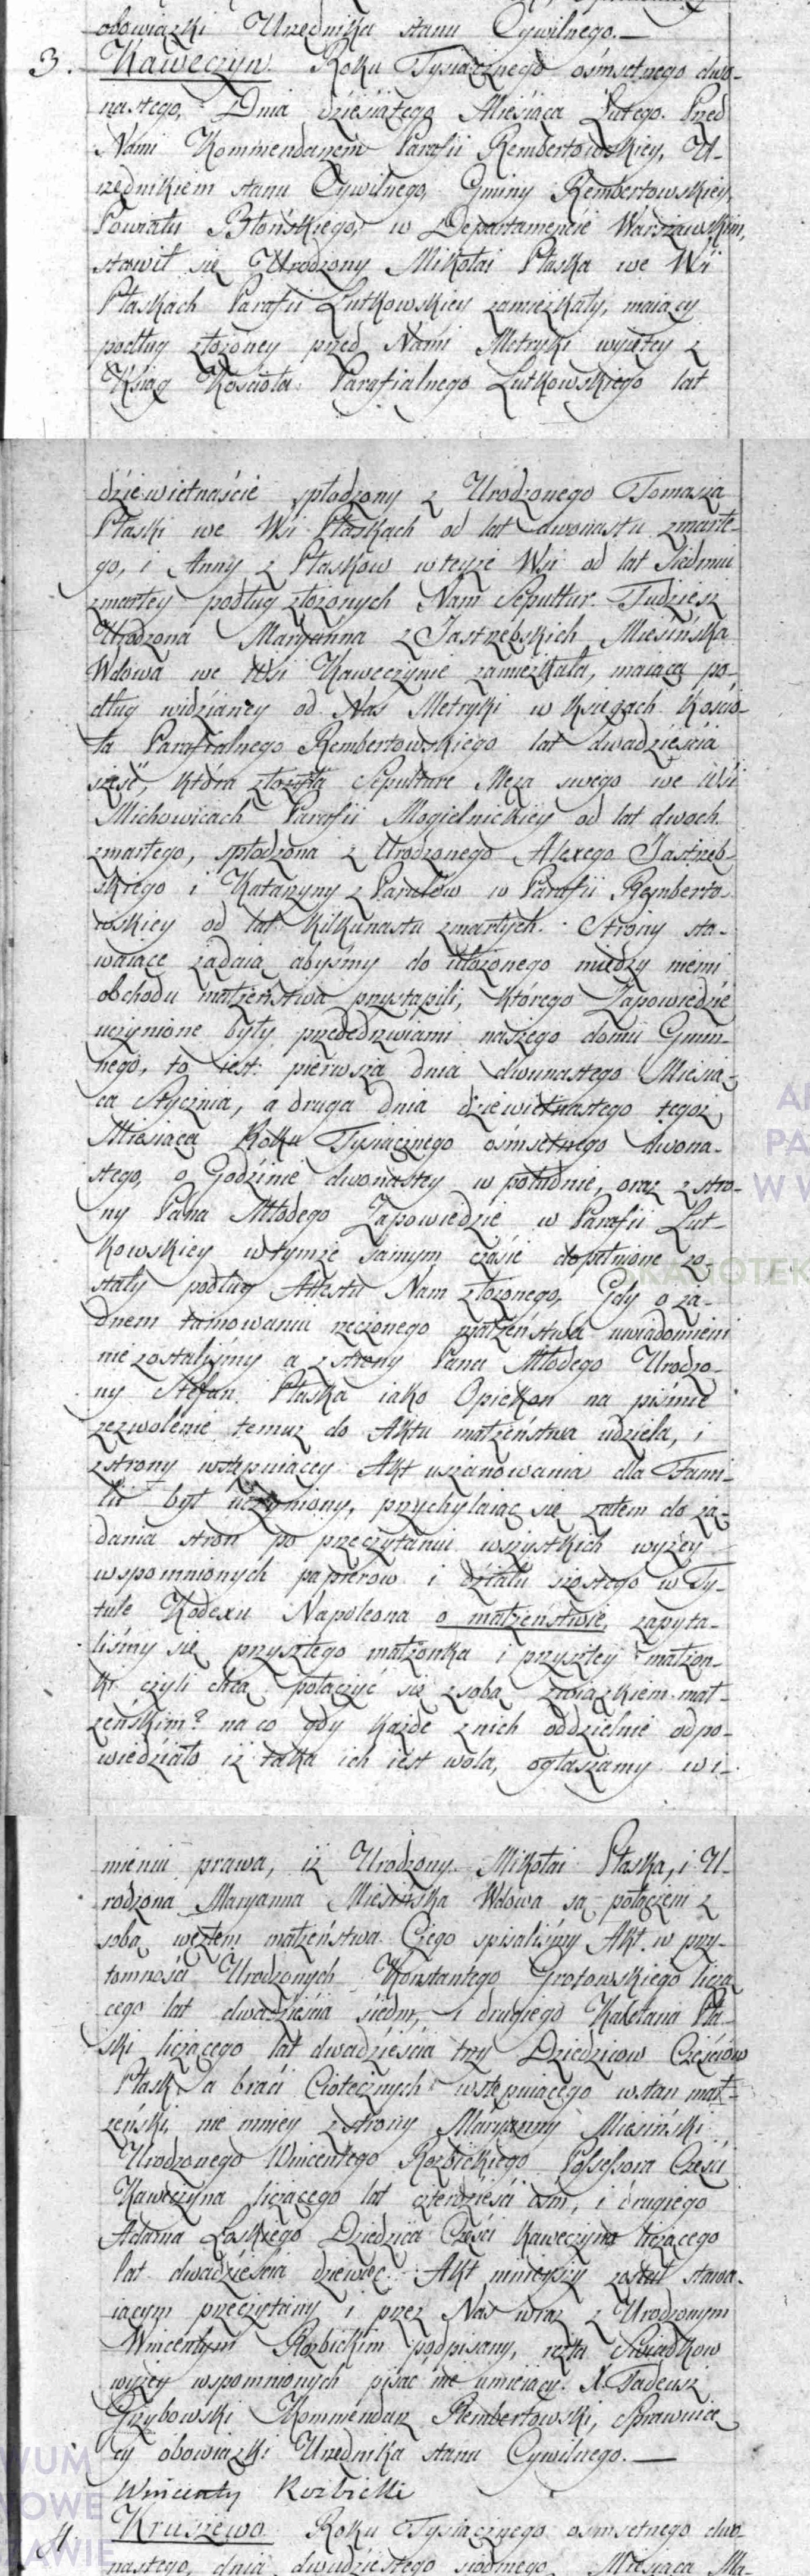 obowiązki Urzędnika stanu Cywilnego.—
3. Kaweczyn. Roku Tysiącznego ośmsetnego dwo-
nastego, Dnia dziesiątego Miesiąca Lutego. Przed
Nami Kommendarzem Parafii Rembertowskiey, U-
rzędnikiem stanu Cywilnego, Gminy Rembertowskiey,
Powiatu Błońskiego, w Departamencie Warszawskim,
stawił się Urodzony Mikołai Płaska we Wsi
Płaskach Parafii Lutkowskiey zamieszkały, maiący
podług złożoney przed Nami Metryki wyiętey z
Ksiąg Kościoła Parafialnego Lutkowskiego lat
dziewietnaście spłodzony z Urodzonego Tomasza
Płaski we Wsi Płaskach od lat dwonastu zmarłe-
go, i Anny z Płasków w teyże Wsi od lat siedmiu
zmarłey podług złożonych Nam Sepultur. Tudzież
Urodzona Maryanna z Jastrzębskich Miesińska
Wdowa we Wsi Kaweczynie zamieszkała, maiąca po-
dług widzianey od Nas Metryki w Księgach Kościo-
ła Parafialnego Rembertowskiego lat dwadzieścia
sześć, która złożyła Sepulturę Męża swego we Wsi
Michowicach Parafii Mogielnickiey od lat dwoch
zmarłego, spłodzona z Urodzonego Alexego Jastrzęb-
skiego i Katarzyny z w Parafii Remberto-
wskiey od lat kilkunastu zmarłych. Strony sta-
waiące żądaią abyśmy do ułożonego między niemi
obchodu małżeństwa przystąpili, którego Zapowiedzie
uczynione były przededrzwiami naszego domu Gmin-
nego, to iest: pierwsza dnia dwunastego Miesią-
ca Stycznia, a druga dnia dziewietnastego tegoż
Miesiąca Roku Tysiącznego ośmsetnego dwona-
stego, o Godzinie dwonastey w południe, oraz z stro-
ny Pana Młodego Zapowiedzie w Parafii Lut-
kowskiey w tymże samym czasie dopełnione zo-
stały podług Attestu Nam złożonego, Gdy o ża-
dnem tamowaniu rzeczonego małżeństwa uwiadomieni
nie zostaliśmy a z strony Pana Młodego Urodzo-
ny Stefan Płaska iako Opiekon na piśmie
zezwolenie temuż do Aktu małżeństwa udziela, i
z strony wstępuiącey Akt uszanowania dla Fami-
lii był uczyniony, przychylaiąc się zatem do żą-
dania stron po przeczytaniu wszystkich wyżey
wspomnionych papierow i działu szostego w Ty-
tule Kodexu Napoleona o małżeństwie, zapyta-
liśmy się przyszłego małżonka i przyszłey małżon-
ki czyli chcą połączyć się z sobą związkiem mał-
żeńskim? na co gdy każde z nich oddzielnie odpo-
wiedziało iż taka ich iest wola, ogłaszamy w i-
mieniu prawa, iż Urodzony Mikołai Płaska, i U-
rodzona Maryanna Miesińska Wdowa są połączeni z
sobą węzłem małżeństwa. Czego spisaliśmy Akt w przy-
tomności Urodzonych Konstantego Grotowskiego liczą-
cego lat dwadzieścia siedm, i drugiego Kaietana Pła-
ski liczącego lat dwadzieścia trzy Dziedzicow Częściow
Płask, a braci Ciotecznych wstępuiącego w stan mał-
żeński, nie mniey z strony Maryanny Miesiński
Urodzonego Wincentego Rozbickiego Possessora Części
Kaweczyna liczącego lat czterdzieści ośm, i drugiego
Adama Łoskiego Dziedzica Części Kaweczyna liczącego
lat dwadzieścia dziewięć. Akt ninieyszy został stawa-
iącym przeczytany i przez Nas wraz z Urodzonym
Wincentym Rozbickim podpisany, reszta Swiadkow
wyżey wspomnionych pisać nie umieiący. X. Tadeusz
Grzybowski Kommendarz Rembertowski, Sprawuią-
cy obowiązki Urzędnika stanu Cywilnego.—
Wincenty Rozbicki
4. Kruszewo. Roku Tysiącznego ośmsetnego dwo-
nastego, dnia dwudziestego siodmego, Miesiąca Ma-